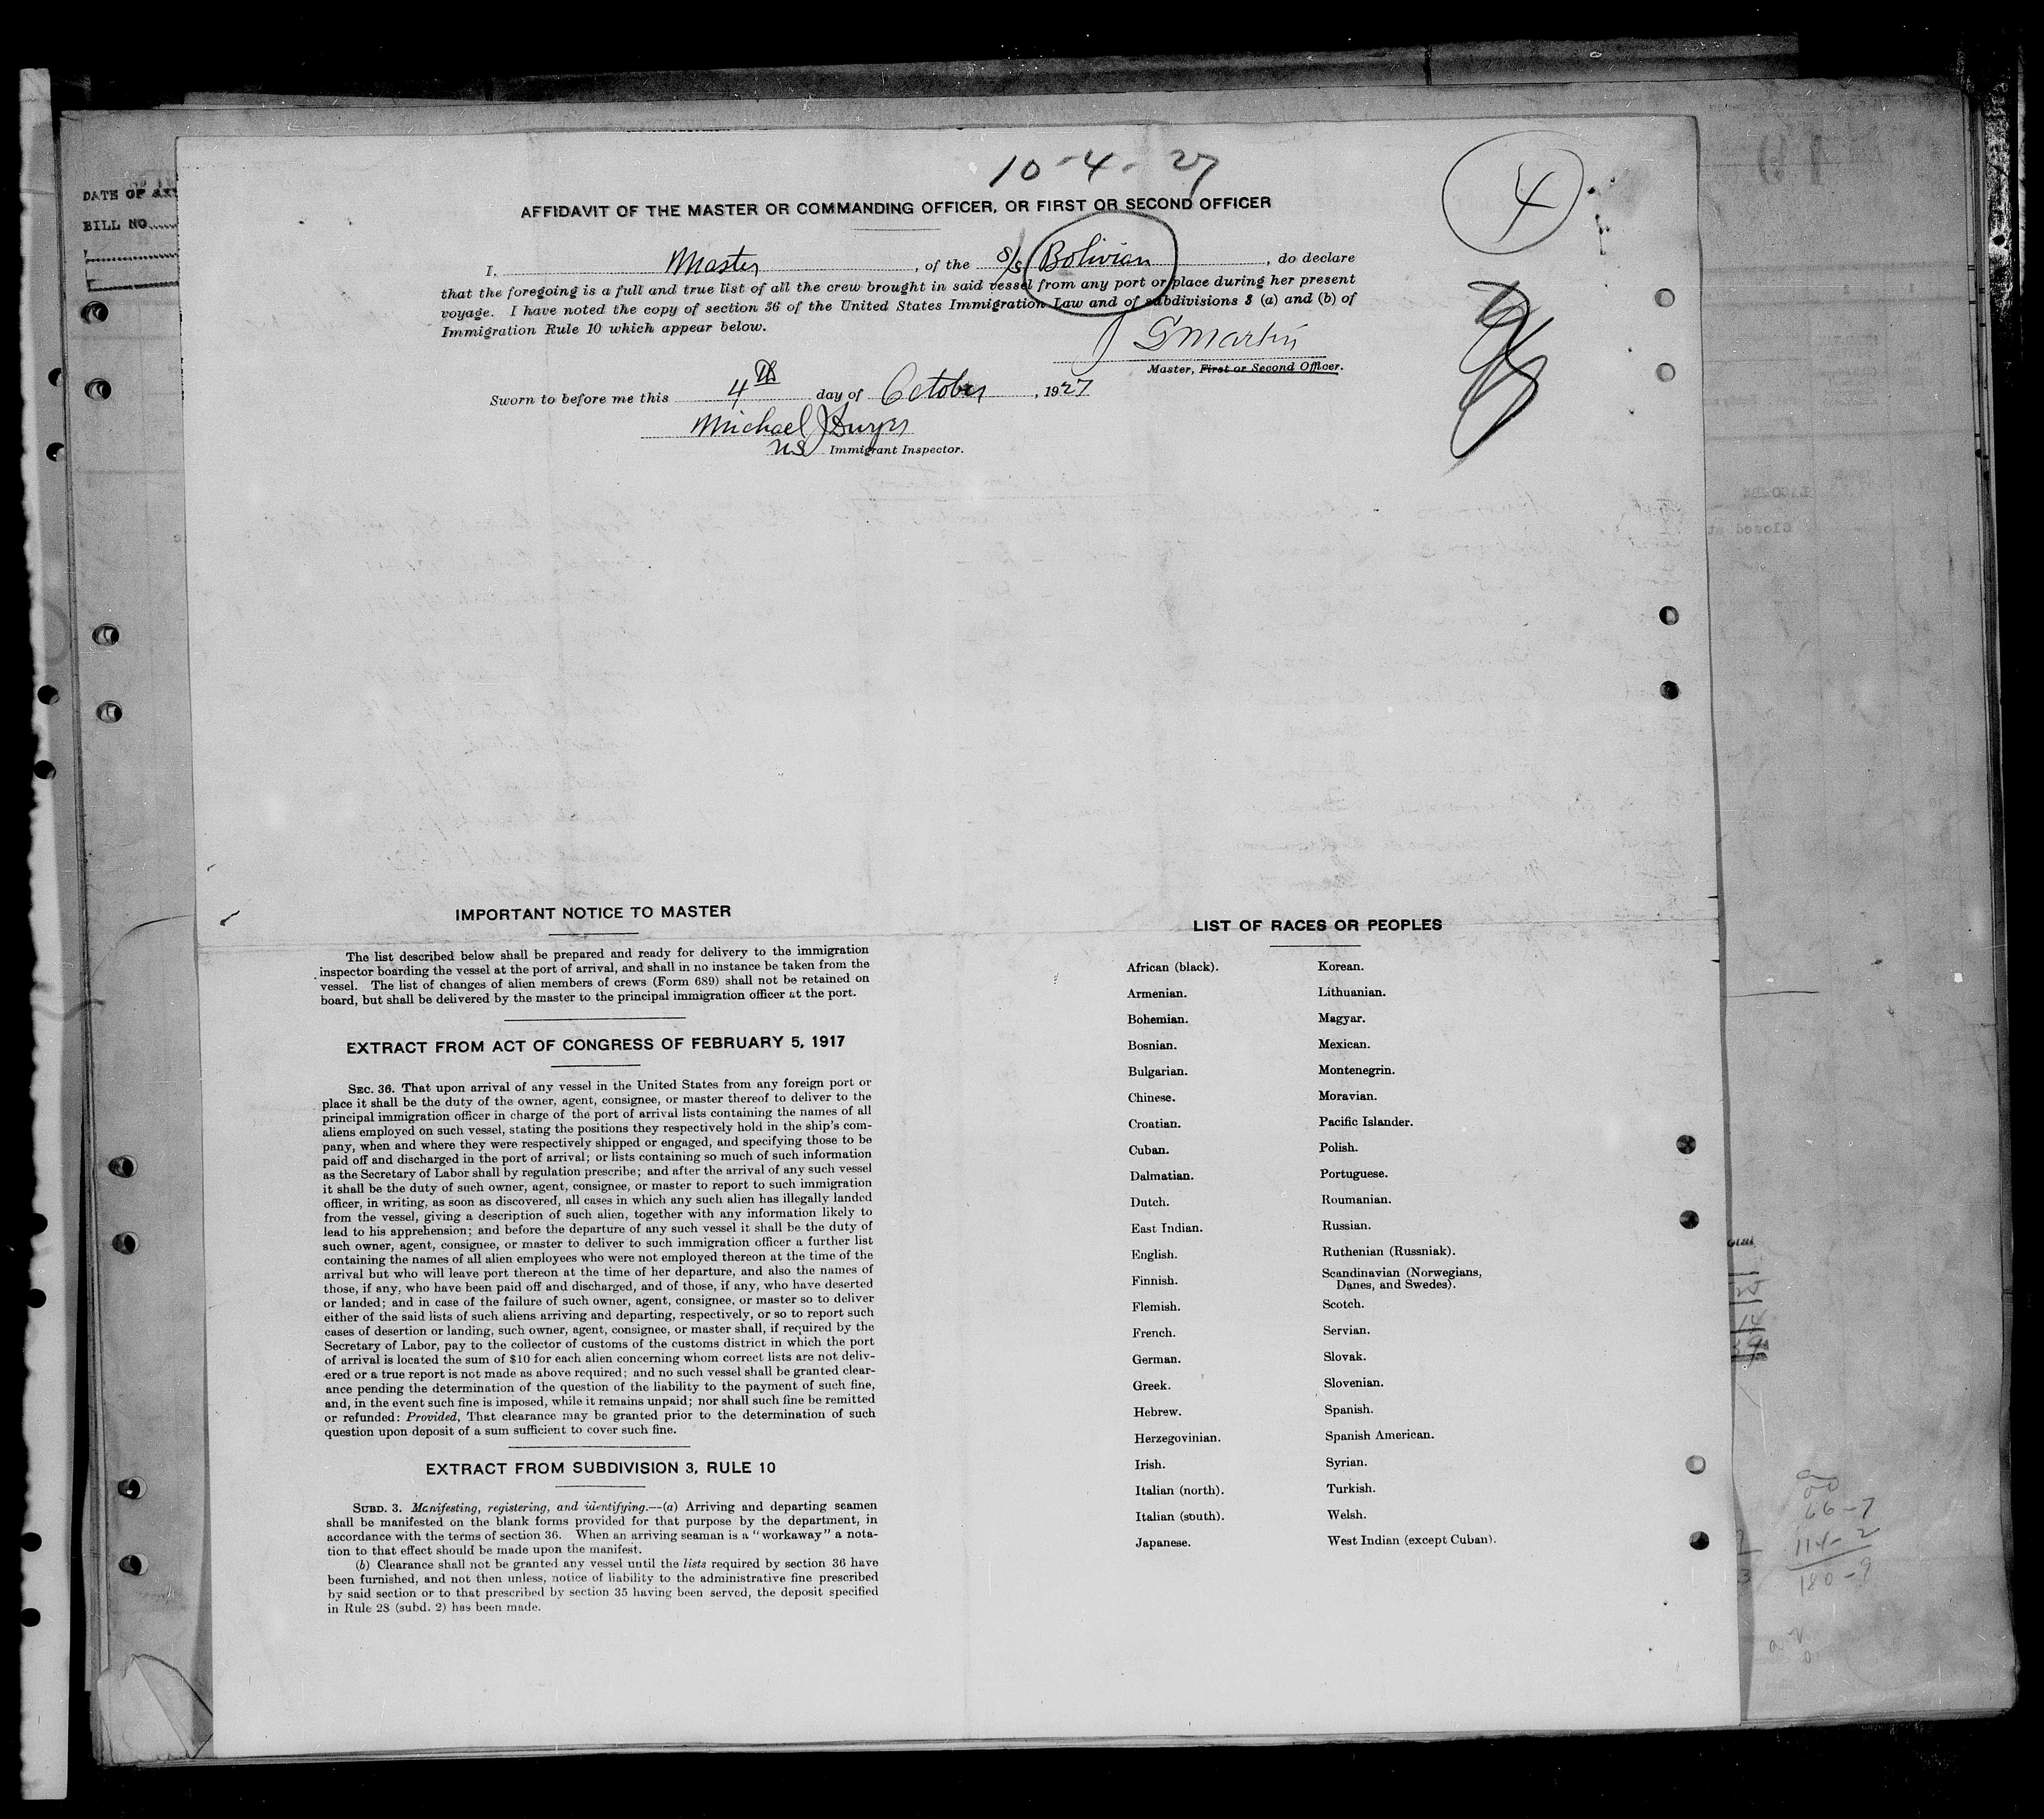 10-4-27
4
AFFIDAVIT OF THE MASTER OR COMMANDING OFFICER, OR FIRST OR SECOND OFFICER
I, Master, of the S/S Bolivian, do declare
that the foregoing is a full and true list of all the crew brought in said vessel from any port or place during her present
voyage. I have noted the copy of section 36 of the United States Immigration Law and of subdivisions 3 (a) and (b) of
Immigration Rule 10 which appear below.
G Martin
Master, First or Second Officer.
Sworn to before me this 4th day of October, 1927
Michael
US Immigrant Inspector.
DATE OF
BILL NO.
IMPORTANT NOTICE TO MASTER
The list described below shall be prepared and ready for delivery to the immigration
inspector boarding the vessel at the port of arrival, and shall in no instance be taken from the
vessel. The list of changes of alien members of crews (Form 689) shall not be retained on
board, but shall be delivered by the master to the principal immigration officer at the port.
EXTRACT FROM ACT OF CONGRESS OF FEBRUARY 5, 1917
SEC. 36. That upon arrival of any vessel in the United States from any foreign port or
place it shall be the duty of the owner, agent, consignee, or master thereof to deliver to the
principal immigration officer in charge of the port of arrival lists containing the names of all
aliens employed on such vessel, stating the positions they respectively hold in the ship's com-
pany, when and where they were respectively shipped or engaged, and specifying those to be
paid off and discharged in the port of arrival; or lists containing so much of such information
as the Secretary of Labor shall by regulation prescribe; and after the arrival of any such vessel
it shall be the duty of such owner, agent, consignee, or master to report to such immigration
officer, in writing, as soon as discovered, all cases in which any such alien has illegally landed
from the vessel, giving a description of such alien, together with any information likely to
lead to his apprehension; and before the departure of any such vessel it shall be the duty of
such owner, agent, consignee, or master to deliver to such immigration officer a further list
containing the names of all alien employees who were not employed thereon at the time of the
arrival but who will leave port thereon at the time of her departure, and also the names of
those, if any, who have been paid off and discharged, and of those, if any, who have deserted
or landed; and in case of the failure of such owner, agent, consignee, or master so to deliver
either of the said lists of such aliens arriving and departing, respectively, or so to report such
cases of desertion or landing, such owner, agent, consignee, or master shall, if required by the
Secretary of Labor, pay to the collector of customs of the customs district in which the port
of arrival is located the sum of $10 for each alien concerning whom correct lists are not deliv-
ered or a true report is not made as above required; and no such vessel shall be granted clear-
ance pending the determination of the question of the liability to the payment of such fine,
and, in the event such fine is imposed, while it remains unpaid; nor shall such fine be remitted
or refunded: Provided, That clearance may be granted prior to the determination of such
question upon deposit of a sum sufficient to cover such fine.
EXTRACT FROM SUBDIVISION 3, RULE 10
SUBD. 3. Manifesting, registering, and identifying.—(a) Arriving and departing seamen
shall be manifested on the blank forms provided for that purpose by the department, in
accordance with the terms of section 36. When an arriving seaman is a "workaway" a nota-
tion to that effect should be made upon the manifest.
(b) Clearance shall not be granted any vessel until the lists required by section 36 have
been furnished, and not then unless, notice of liability to the administrative fine prescribed
by said section or to that prescribed by section 35 having been served, the deposit specified
in Rule 28 (subd. 2) has been made.
LIST OF RACES OR PEOPLES
African (black).
Armenian.
Bohemian.
Bosnian.
Bulgarian.
Chinese.
Croatian.
Cuban.
Dalmatian.
Dutch.
East Indian.
English.
Finnish.
Flemish.
French.
German.
Greek.
Hebrew.
Herzegovinian.
Irish.
Italian (north).
Italian (south).
Japanese.
Korean.
Lithuanian.
Magyar.
Mexican.
Montenegrin.
Moravian.
Pacific Islander.
Polish.
Portuguese.
Roumanian.
Russian.
Ruthenian (Russniak).
Scandinavian (Norwegians,
Danes, and Swedes).
Scotch.
Servian.
Slovak.
Slovenian.
Spanish.
Spanish American.
Syrian.
Turkish.
Welsh.
West Indian (except Cuban).
66-7
114-2
180-9